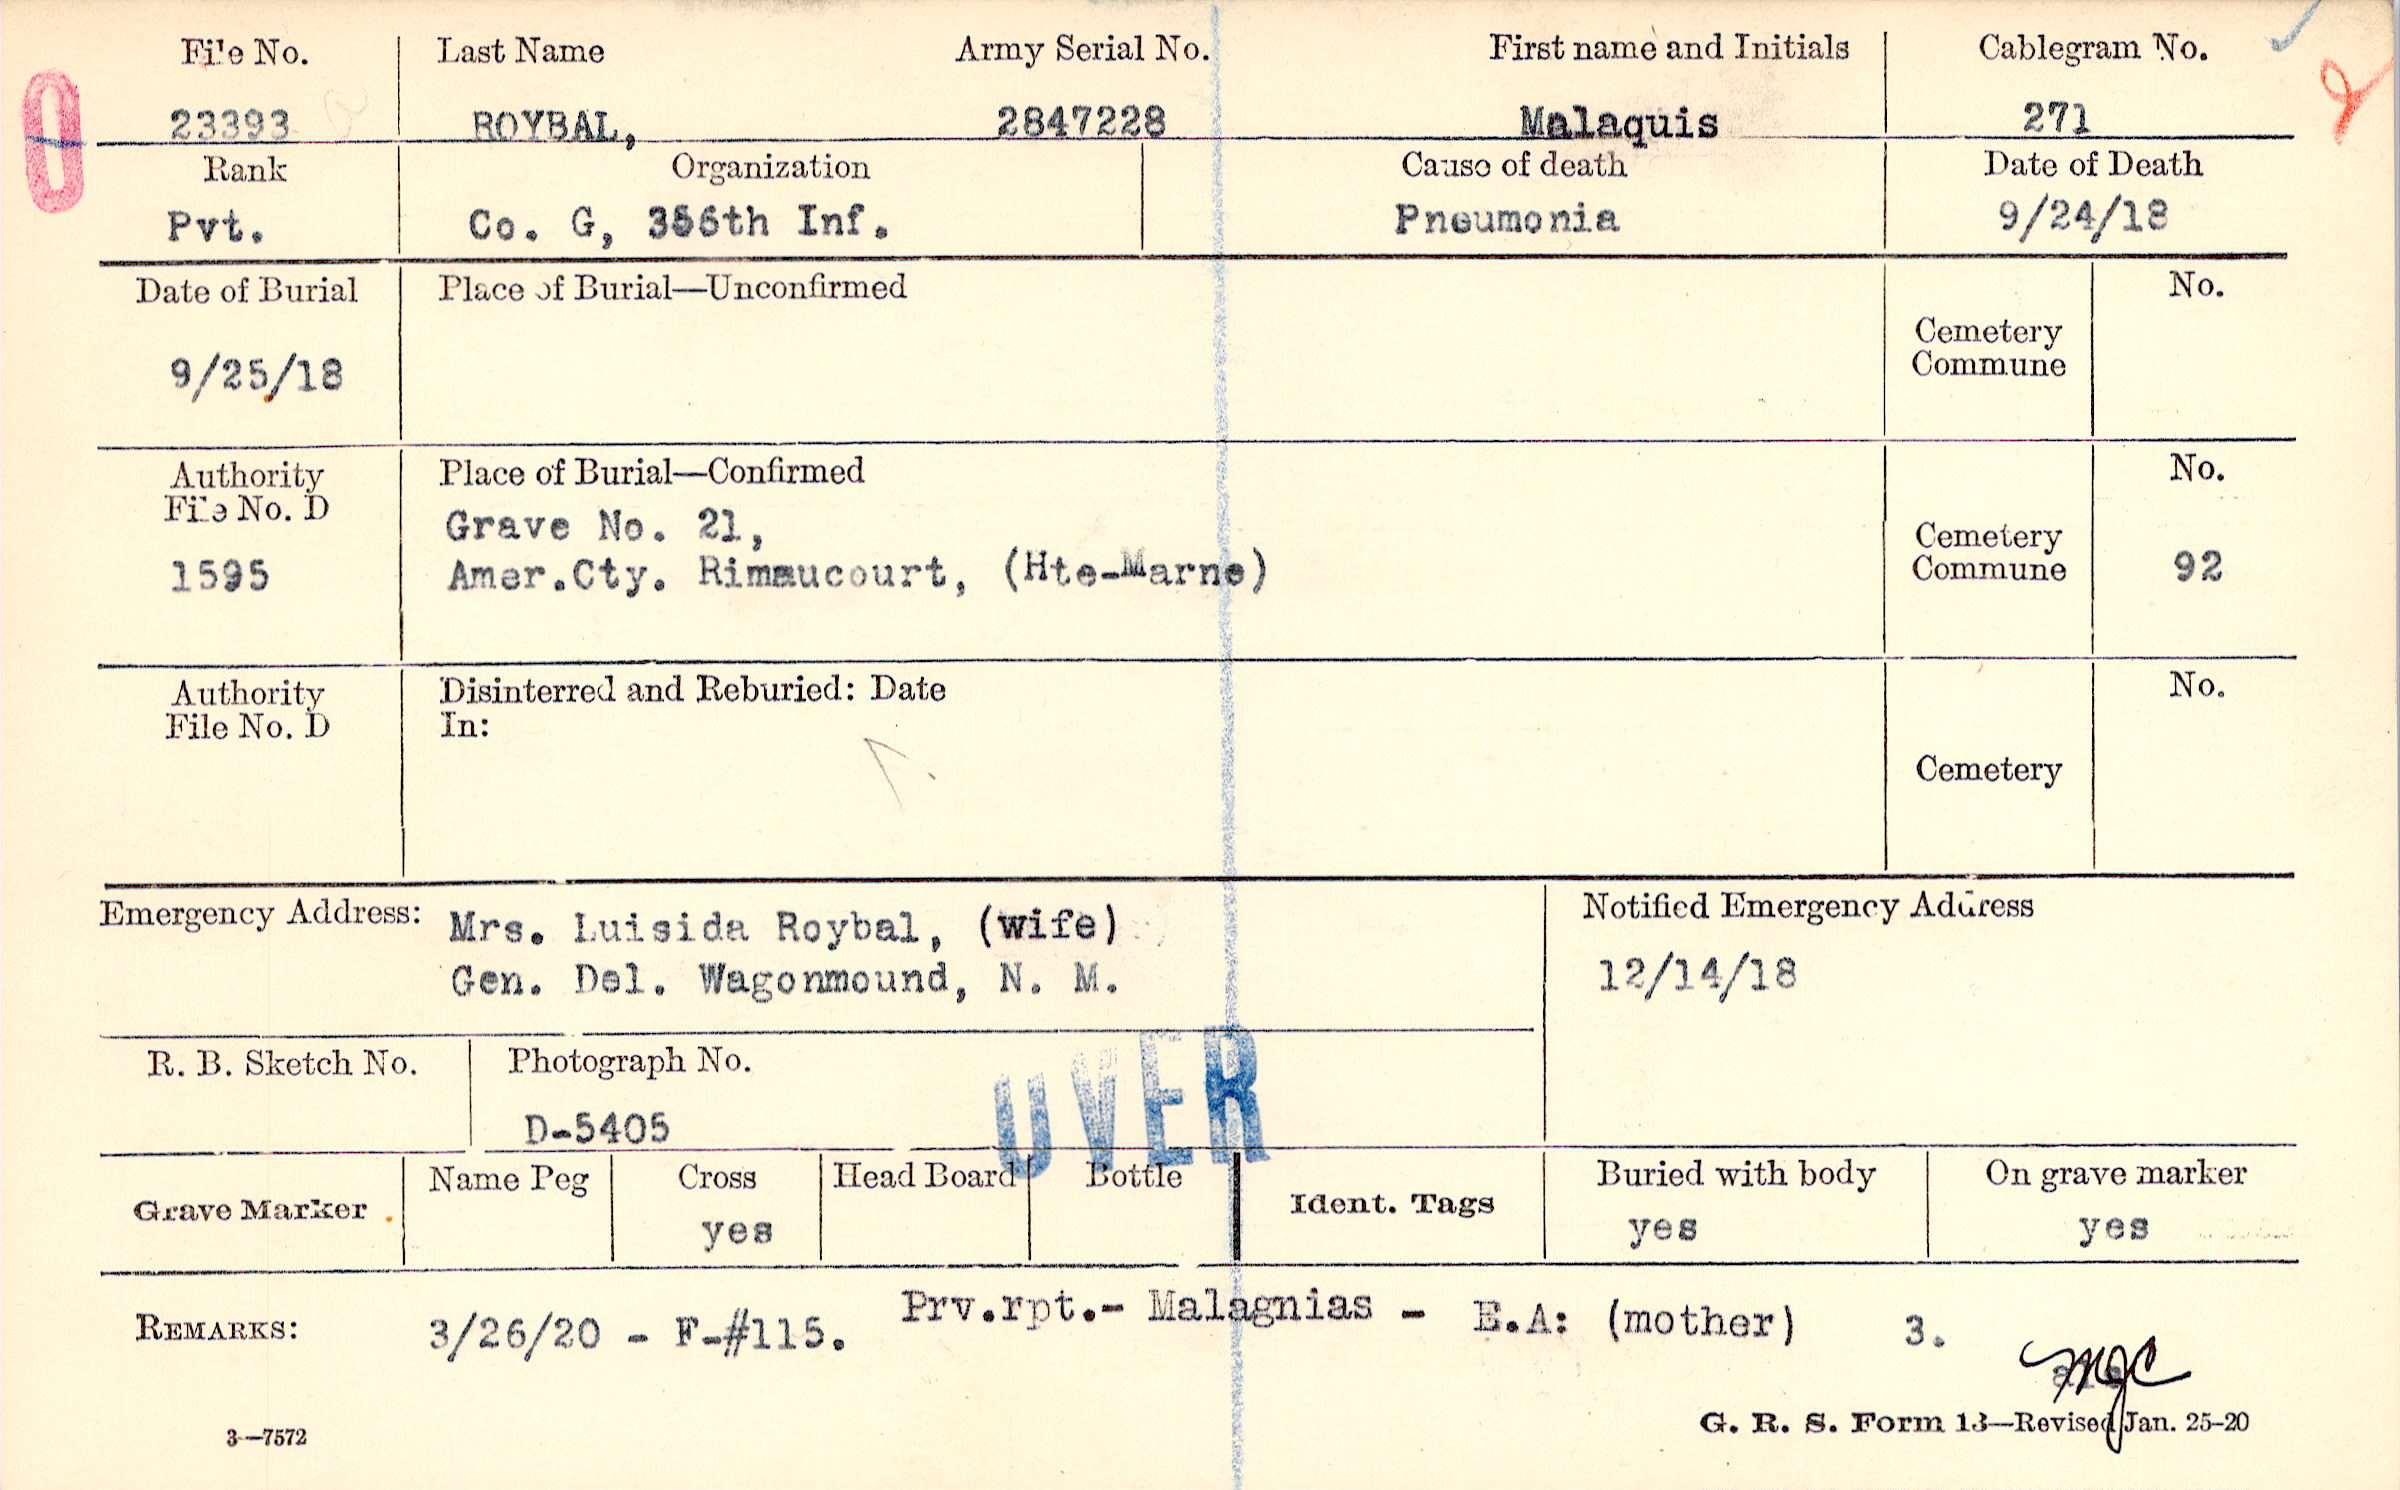 File No. Last Name Army Serial No. First name and Initials Cablegram No.
23393 ROYBAL, 2847228 Malaquis 271
Rank Organization Cause of death Date of Death
Pvt. Co. G, 356th Inf. Pneumonia 9/24/18
Date of Burial Place of Burial—Unconfirmed No.
Cemetery
Commune
9/25/18
Authority Place of Burial—Confirmed No.
File No. D
Grave No. 21,
Cemetery
1595 Amer.Cty. Rimaucourt, (Hte-Marne) Commune 92
Authority Disinterred and Reburied: Date No.
File No. D In:
Cemetery
Emergency Address: Mrs. Luisida Roybal, (wife) Notified Emergency Address
Gen. Del. Wagonmound, N. M. 12/14/18
R. B. Sketch No. Photograph No.
D-5405
OVER
Grave Marker Name Peg Cross Head Board Bottle Ident. Tags Buried with body On grave marker
yes yes yes
REMARKS: 3/26/20 - F-#115. Prv.rpt.- Malagnias - E.A: (mother) 3.
MJC
3—7572 G. R. S. Form 13—Revised Jan. 25-20